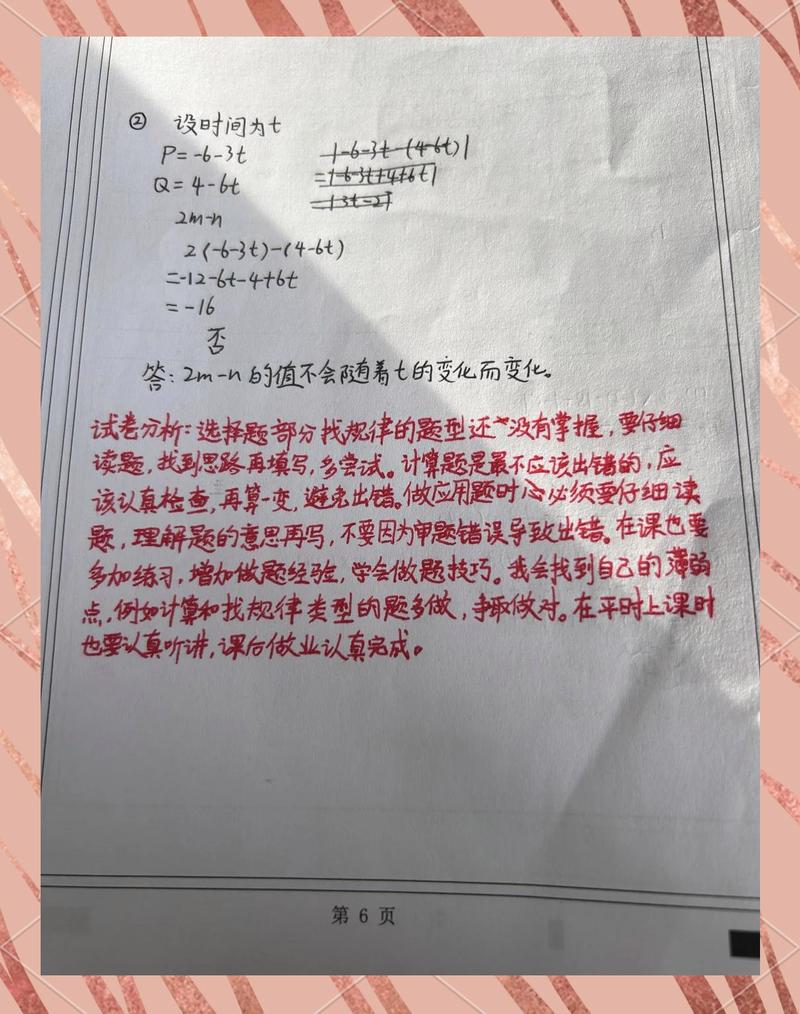 ② 设时间为t
P=-6-3t
|-6-3t-(4-6t)|
Q=4-6t
=|-6-3t+4+6t|
=|3t-2|
2m-n
2(-6-3t)-(4-6t)
=-12-6t-4+6t
=-16
否
答:2m-n的值不会随着t的变化而变化。
试卷分析:选择题部分找规律的题型还没有掌握,要仔细
读题,找到思路再填写,多尝试。计算题是最不应该出错的,应
该认真检查,再算一变,避免出错。做应用题时必须要仔细读
题,理解题的意思再写,不要因为审题错误导致出错。在课也要
多加练习,增加做题经验,学会做题技巧。我会找到自己的薄弱
点,例如计算和找规律类型的题多做,争取做对。在平时上课时
也要认真听讲,课后做业认真完成。
第 6 页